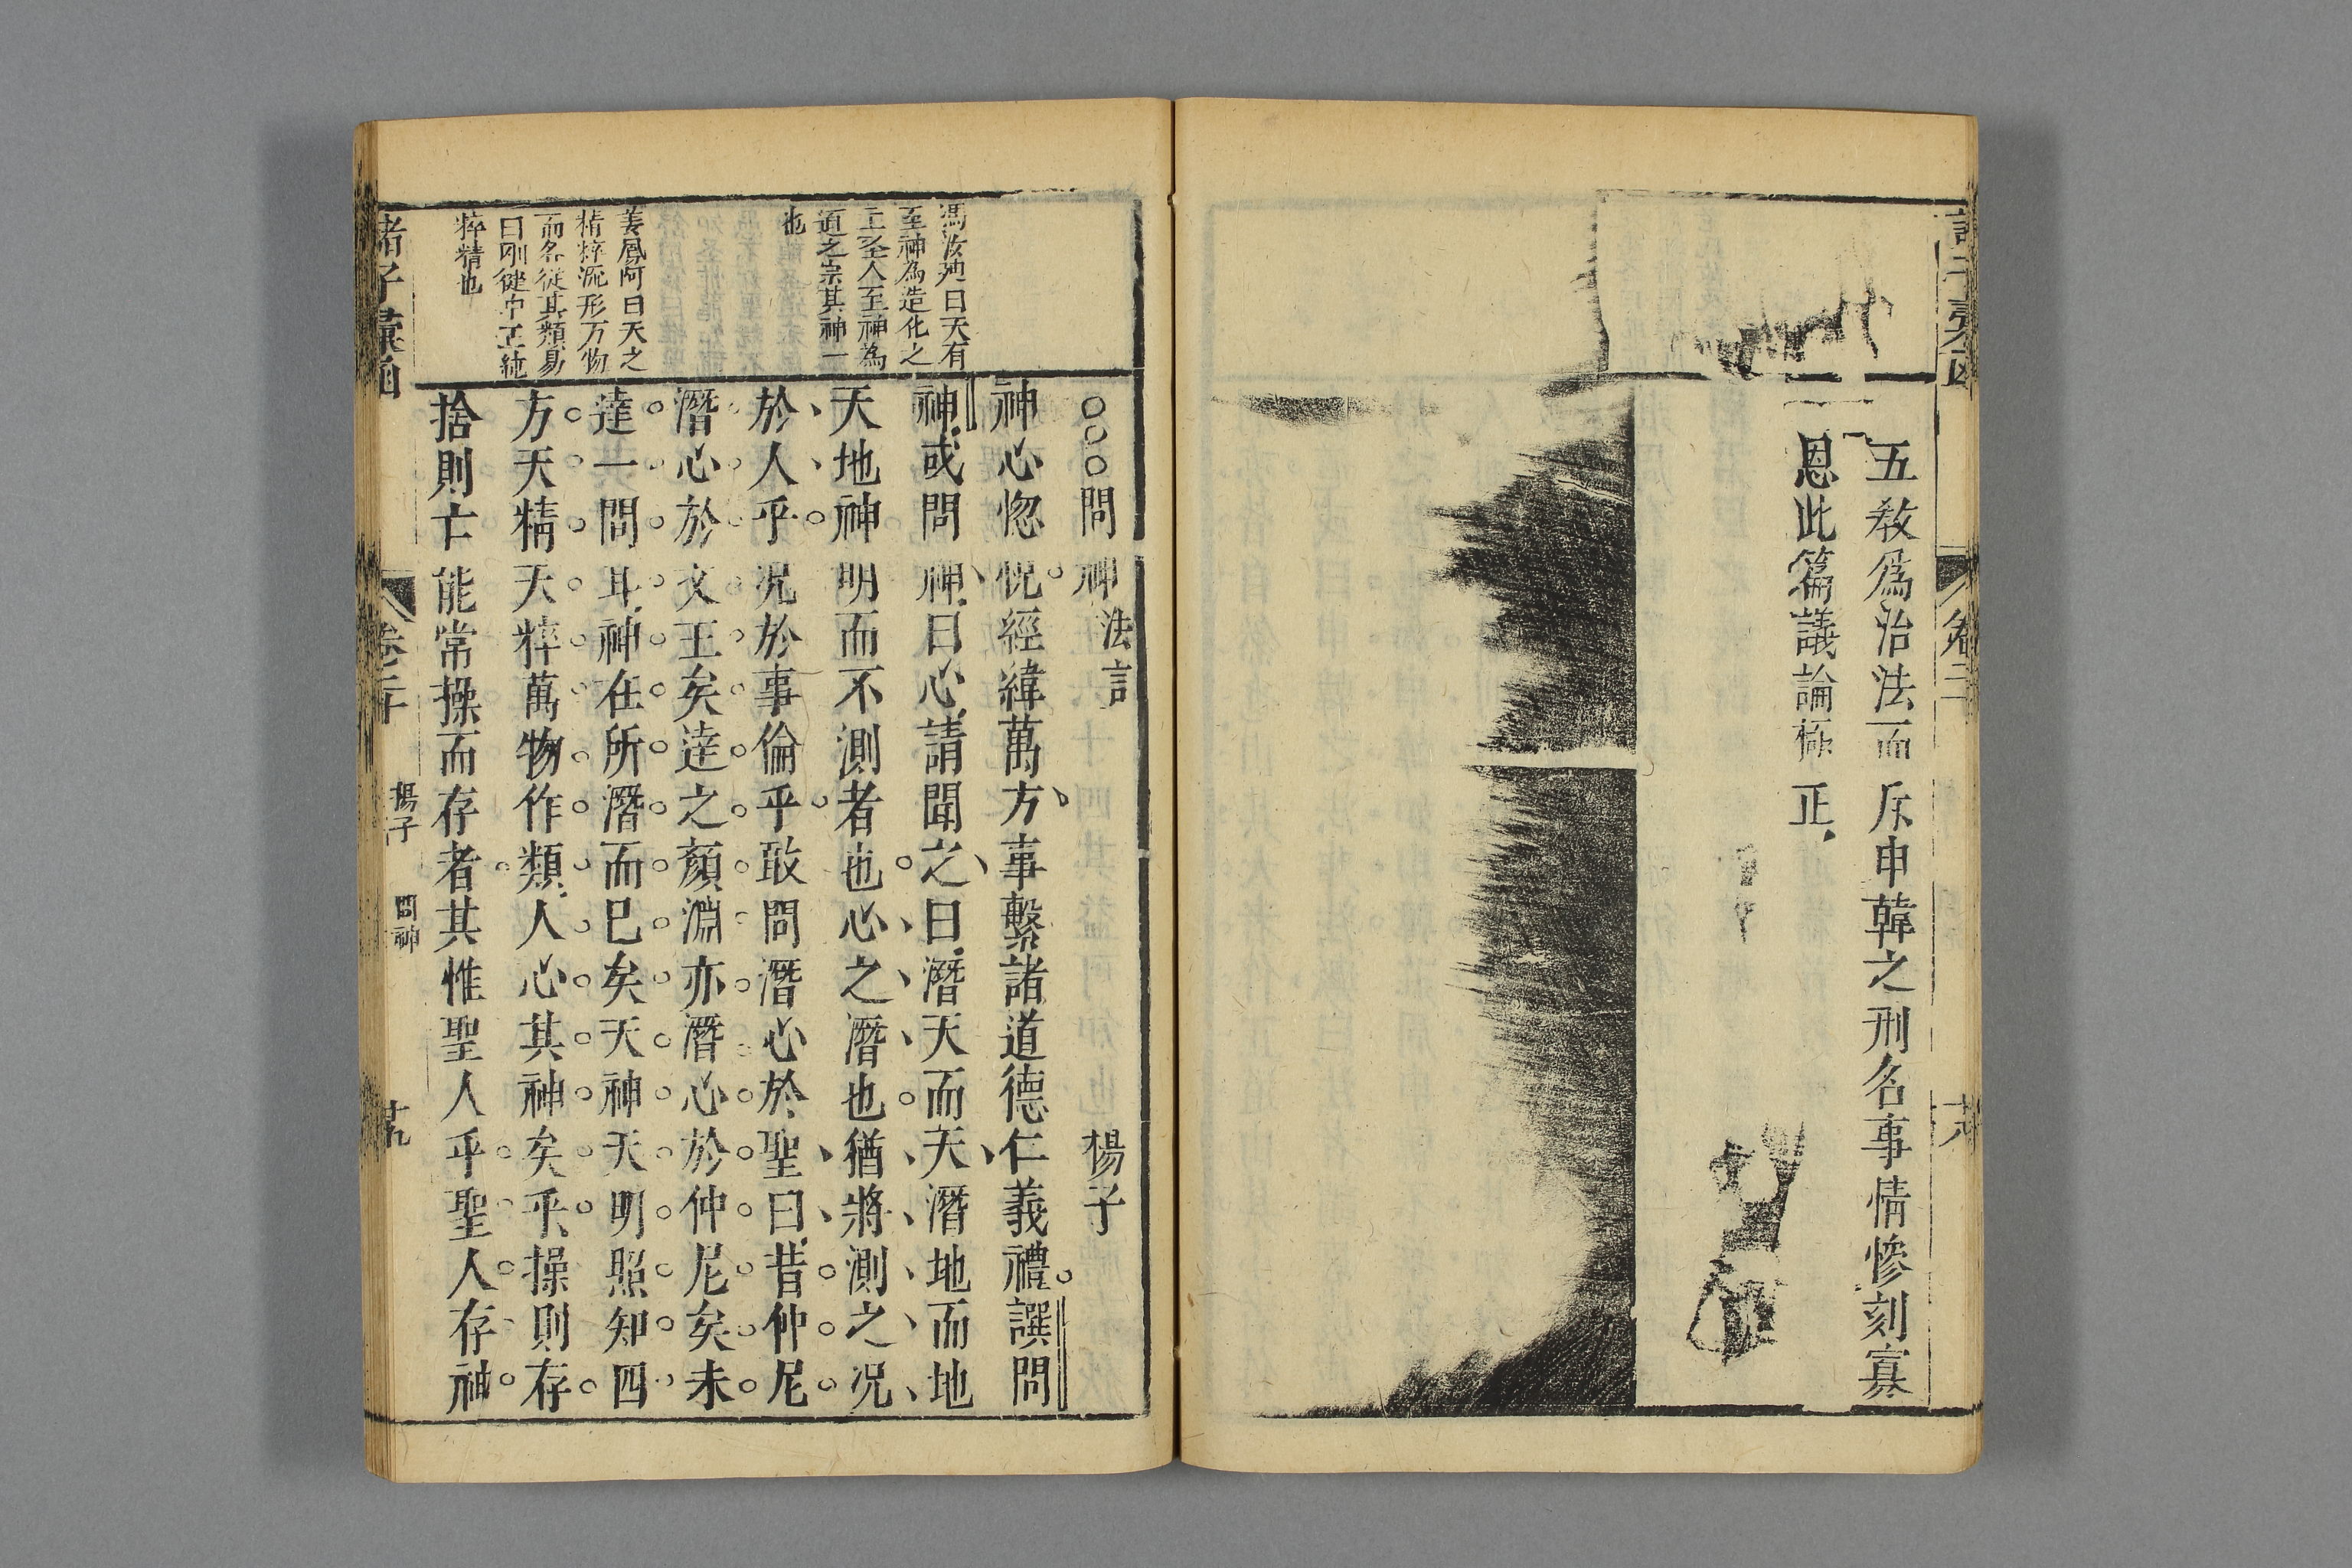 五教爲治法而斥申韓之刑名事情慘刻寡
恩此篇議論極正
卷二
○○○問神 法言 楊子
神心惚恍經緯萬方事繫諸道德仁義禮譔問
神或問神曰心請聞之曰潛天而天潛地而地
天地神明而不測者也心之潛也猶將測之况
於人乎况於事倫乎敢問潛心於聖曰昔仲尼
潛心於文王矣達之顏淵亦潛心於仲尼矣未
達一間耳神在所潛而已矣天神天明照知四
方天精天粹萬物作類人心其神矣乎操則存
捨則亡能常操而存者其惟聖人乎聖人存神
至神為造化之
工至人至神為
道之宗其神一
也
姜鳳阿曰天之
精粹流形万物
而各從其類易
曰剛健中正純
粹精也
諸子彙函
楊子
問神